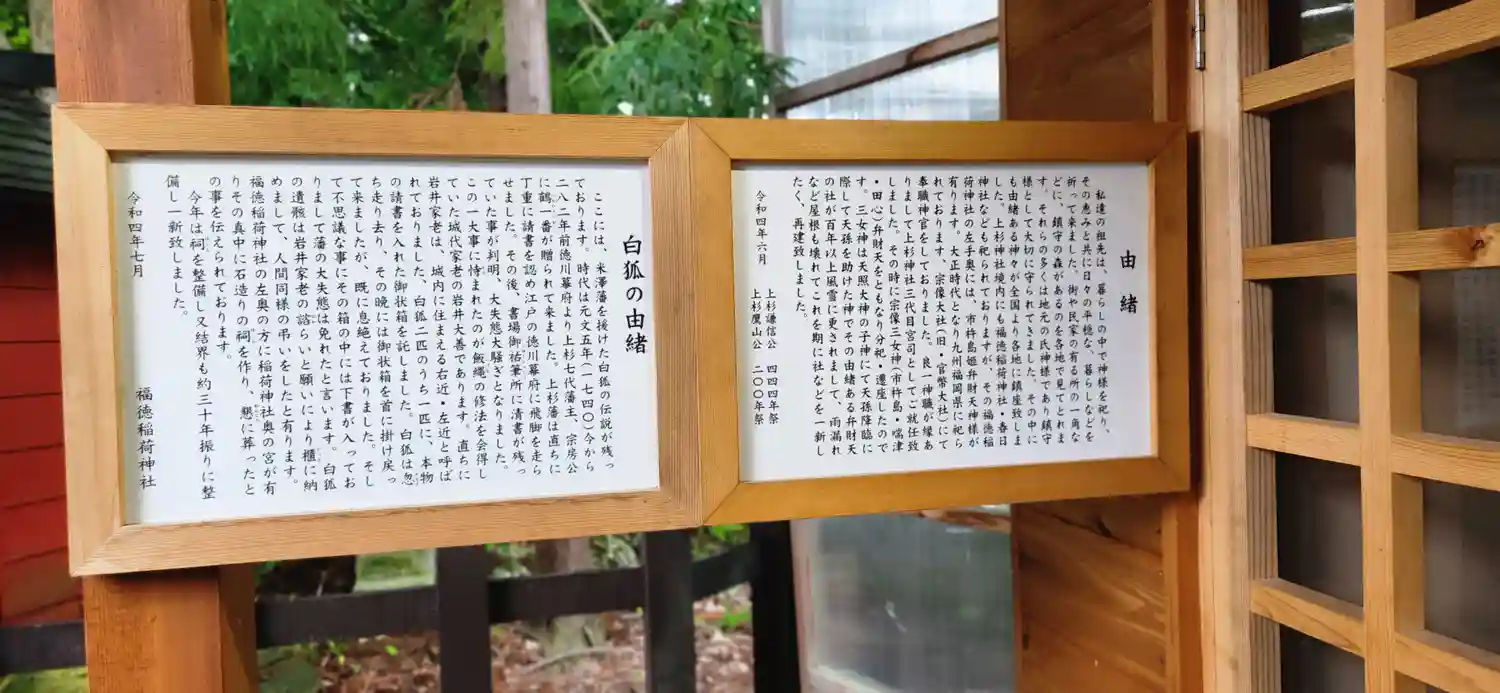 由緒
私達の祖先は、暮らしの中で神様を祀り、
その恵みと共に日々の平穏な、暮らしなどを
祈って来ました。御や民家の有る所の一角な
どに、鎮守の森があるのを各地で見てとれま
す。それらの多くは地元の氏神様であり鎮守
様として大切に守られてきました。その中に
も由緒ある神々が全国より各地に鎮座致しま
した。上杉神社境内にも福徳稲荷神社・春日
神社なども祀られておりますが、その福徳稲
荷神社の左手奥には、市杵島姫弁財天神様が
有ります。大正時代となり九州福岡県に祀ら
れております。宗像大社(旧・官幣大社)にて
奉職神官をしておりました。良一神職が縁あ
りまして上杉神社三代目宮司としてご就任致
しました。その時に宗像三女神(市杵島・喘津
・田心)弁財天をともなり分祀・遷座したので
す。三女神は天照大神の子神にて天孫降臨に
際して天孫を助けた神でその由緒ある弁財天
の社が百年以上風雪に更されまして、雨漏れ
など屋根も壊れてこれを期に社などを一新し
たく、再建致しました。
令和四年六月
上杉謙信公 四四四年祭
上杉鷹山公 二〇〇年祭
白狐の由緒
ここには、米澤藩を援けた白狐の伝説が残っ
ております。時代は元文五年(一七四〇)今から
二八二年前徳川幕府より上杉七代藩主、宗房公
に鶴一番が贈られて来ました。上杉藩は直ちに
丁重に請書を認め江戸の徳川幕府に飛脚を走ら
せました。その後、書場御祐筆所に清書が残っ
ていた事が判明、大失態大騒ぎとなりました。
この一大事に恃まれたのが飯縄の修法を会得し
ていた城代家老の岩井大善であります。直ちに
岩井家老は、城内に住まえる右近・左近と呼ば
れておりました、白狐二匹のうち一匹に、本物
の請書を入れた御状箱を託しました。白狐は忽
ち走り去り、その晩には御状箱を首に掛け戻っ
て来ましたが、既に息絶えておりました。そし
て不思議な事にその箱の中には下書が入ってお
りまして藩の大失態は免れたと言います。白狐
の遺骸は岩井家老の諮らいと願いにより櫃に納
めまして、人間同様の弔いをしたと有ります。
福徳稲荷神社の左奥の方に稲荷神社奥の宮が有
りその真中に石造りの祠を作り、懇に葬ったと
の事を伝えられております。
今年は祠を整備し又結界も約三十年振りに整
備し一新致しました。
令和四年七月
福徳稲荷神社